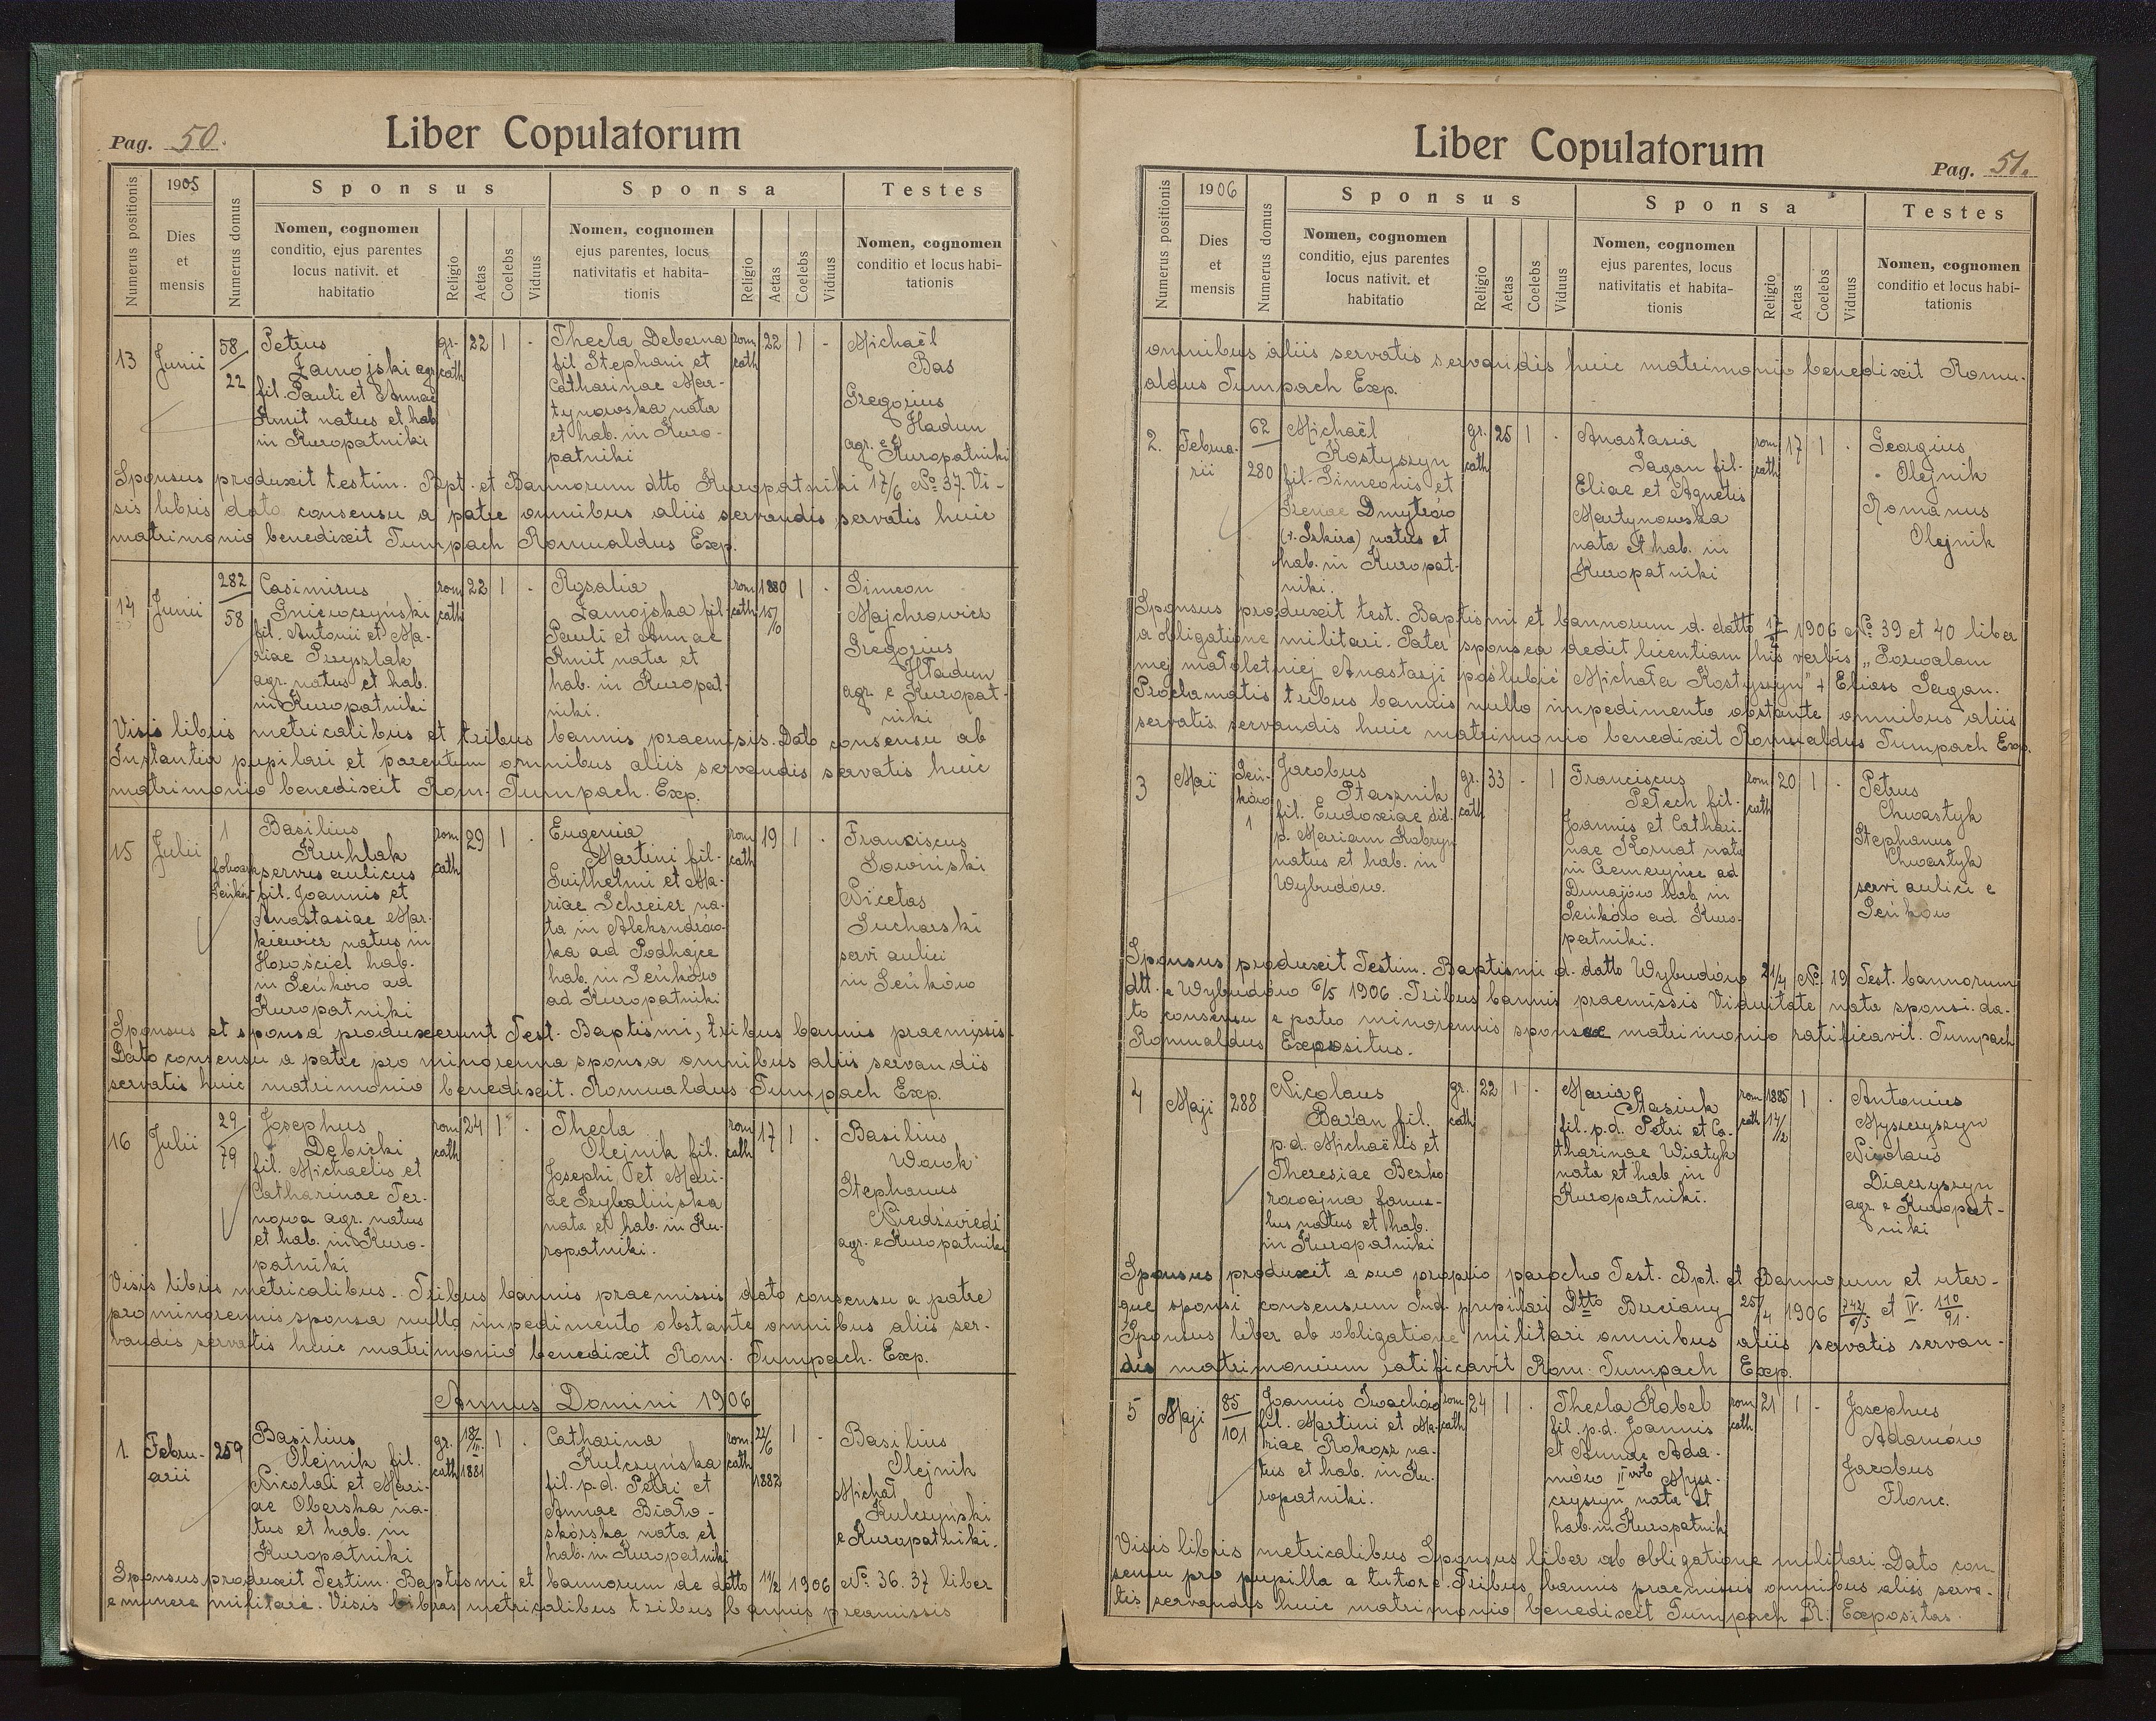 Pag. 50.
Liber Copulatorum
Numerus positionis
1905
Dies
et
mensis
Numerus domus
Sponsus
Nomen, cognomen
conditio, ejus parentes
locus nativit. et
habitatio
Religio
Aetas
Coelebs
Viduus
Sponsa
Nomen, cognomen
ejus parentes, locus
nativitatis et habita-
tionis
Religio
Aetas
Coelebs
Viduus
Testes
Nomen, cognomen
conditio et locus habi-
tationis
13
Junii
58/22
Petrus
Zamojski agr.
fil. Pauli et Annae
Kmit natus et hab.
in Kuropatniki
gr. cath
22
1
-
Thecla Deberna
fil Stephani et
Catharinae Mar-
tynowska nata
et hab. in Kuro-
patniki
rom cath
22
1
-
Michaël
Bas
Gregorius
Hadun
agr. e Kuropatniki
Sponsus produxit testim. Bpt. et Bannorum dtto Kuropatniki 17/6 No 37. Vi-
sis libris dato consensu a patre omnibus aliis servandis servatis huic
matrimonio benedixit Tumpach Romualdus Exp.
14
Junii
282/58
Casimirus
Gniewczynski
fil. Antonii et Ma-
riae Przyszlak
agr. natus et hab.
in Kuropatniki
rom cath
22
1
-
Rosalia
Zamojska fil
Pauli et Annae
Kmit nata et
hab. in Kuropat-
niki.
rom cath
1880
1
-
Simeon
Majchrowicz
Gregorius
Hadun
agr. e Kuropat-
niki
Visis libris metricalibus et tribus bannis praemisis. Dato consensu ab
Instantia pupilari et parentum omnibus aliis servandis servatis huic
matrimonio benedixit Rom. Tumpach. Exp.
15
Julii
1
folwark
Seńków
Basilius
Kruhlak
servus aulicus
fil. Joannis et
Anastasiae Mar-
kiewicz natus in
Horościel hab.
in Seńków ad
Kuropatniki
rom cath
29
1
-
Eugenia
Martini fil.
Guilhelmi et Ma-
riae Schreier na-
ta in Aleksandrów-
ka ad Podhajce
hab. in Seńków
ad Kuropatniki
rom cath
19
1
-
Franciscus
Sowiński
Nicetas
Sucharski
servi aulici
in Seńków
Sponsus et sponsa produxerunt Test. Baptismi, tribus bannis praemissis.
Dato consensu a patre pro minorenna sponsa omnibus aliis servandis
servatis huic matrimonio benedixit. Romualdus Tumpach Exp.
16
Julii
29/79
Josephus
Debicki
fil. Michaelis et
Catharinae Ter-
nowa agr. natus
et hab. in Kuro-
patniki
rom cath
24
1
-
Thecla
Olejnik fil.
Josephi et Mari-
ae Szybalińska
nata et hab. in Ku-
ropatniki.
rom cath
17
1
-
Basilius
Wowk
Stephanus
Niedźwiedź
agr. e Kuropatniki
Visis libris metricalibus. Tribus bannis praemissis dato consensu a patre
pro minorennis sponsa nullo impedimento obstante omnibus aliis ser-
vandis servatis huic matrimonio benedixit Rom. Tumpach. Exp.
Annus Domini 1906
1.
Febru-
arii
259
Basilius
Olejnik fil.
Nicolai et Mari-
ae Oberska na-
tus et hab. in
Kuropatniki
gr. cath
18/II 1881
1
-
Catharina
Kulczyńska
fil. p.d. Petri et
Annae Biało-
skórska nata et
hab. in Kuropatniki
rom. cath
22/6 1882
1
-
Basilius
Olejnik
Michał
Kulczyński
e Kuropatniki.
Sponsus produxit Testim. Baptismi et bannorum de datto 11/2 1906 No. 36. 37 liber
e munere militare. Visis libras metricalibus tribus bannis preamissis
Liber Copulatorum
Pag. 51.
Numerus positionis
1906
Dies
et
mensis
Numerus domus
Sponsus
Nomen, cognomen
conditio, ejus parentes
locus nativit. et
habitatio
Religio
Aetas
Coelebs
Viduus
Sponsa
Nomen, cognomen
ejus parentes, locus
nativitatis et habita-
tionis
Religio
Aetas
Coelebs
Viduus
Testes
Nomen, cognomen
conditio et locus habi-
tationis
omnibus aliis servatis servandis huic matrimonio benedixit Romu-
aldus Tumpach Exp.
2.
Februa-
rii
62/280
Michaël
Kostyszyn
fil. Simeonis et
Irenae Dmytrów
natus et
hab. in Kuropat-
niki.
gr. cath
25
1
-
Anastasia
Sagan fil.
Eliae et Agnetis
Martynowska
nata et hab. in
Kuropatniki
rom cath
17
1
-
Georgius
Olejnik
Romanus
Olejnik
Sponsus produxit test. Baptismi et bannorum d. datto 1906 No. 39 et 40 liber
a obligatione militari. Pater sponsea dedit licentiam his verbis „Pozwalam
mej małoletniej Anastazji poślubić Michała Kostyszyn" + Eliasz Sagan.
Proclamatis tribus bannis nullo impedimento obstante omnibus aliis
servatis servandis huic matrimonio benedixit Romualdus Tumpach Exp.
3
Maii
Seń-
ków
1
Jacobus
Ptasznik
fil. Eudoxiae
p. Mariam Kobryn
natus et hab. in
Wybudów.
gr. cath
33
-
1
Franciscus
Petech fil.
Joannis et Cathari-
nae Kornat nata
in Ciemeryńce ad
Dunajów hab. in
Seńków ad Kuro-
patniki.
rom. cath
20
1
-
Petrus
Chwastyk
Stephanus
Chwastyk
servi aulici e
Seńkow
Sponsus produxit Testim. Baptismi d. datto Wybudów 21/4 No. 19 Test. bannorum
dtt. e Wybudów 6/5 1906. Tribus bannis praemissis Viduitate nata sponsi. da-
to consensu e patre minorennis sponsae matrimonio ratificavit. Tumpach
Romualdus Expositus.
4
Maji
288
Nicolaus
Baran fil.
p.d. Michaëlis et
Theresiae
famu-
lus natus et hab.
in Kuropatniki
gr. cath
22
1
-
Maria
Stasiuk
fil. p.d. Petri et Ca-
tharinae Wiatyk
nata et hab. in
Kuropatniki.
rom cath
1885 14/12
1
-
Antonius
Myszczyszyn
Nicolaus
Diaczyszyn
agr. e Kuropat-
niki
Sponsus produxit a suo proprio parocho Test. Bpt. et Bannorum et uter-
que sponsi consensum Jud. pupilari Dtto Buczany 25/4 1906 742/6/5 et IV. 110/91.
Sponsus liber ab obligatione militari omnibus aliis servatis servan-
dis matrimonium ratificavit Rom. Tumpach Exp.
5
Maji
85/101
Joannis Iwachów
fil. Martini et Ma-
riae Rokosz na-
tus et hab. in Ku-
ropatniki.
rom cath
24
1
-
Thecla Kobel
fil. p.d. Joannis
et Annae Ada-
mów II voto Mysz-
czyszyn nata et
hab. in Kuropatniki
rom cath
21
1
-
Josephus
Adamów
Jacobus
Flonc.
Visis libris metricalibus Sponsus liber ab obligatione militari. Dato con-
sensu pro pupilla a tutore. Tribus bannis praemissis omnibus aliis serva-
tis servandis huic matrimonio benedixit Tumpach R. Expositus.